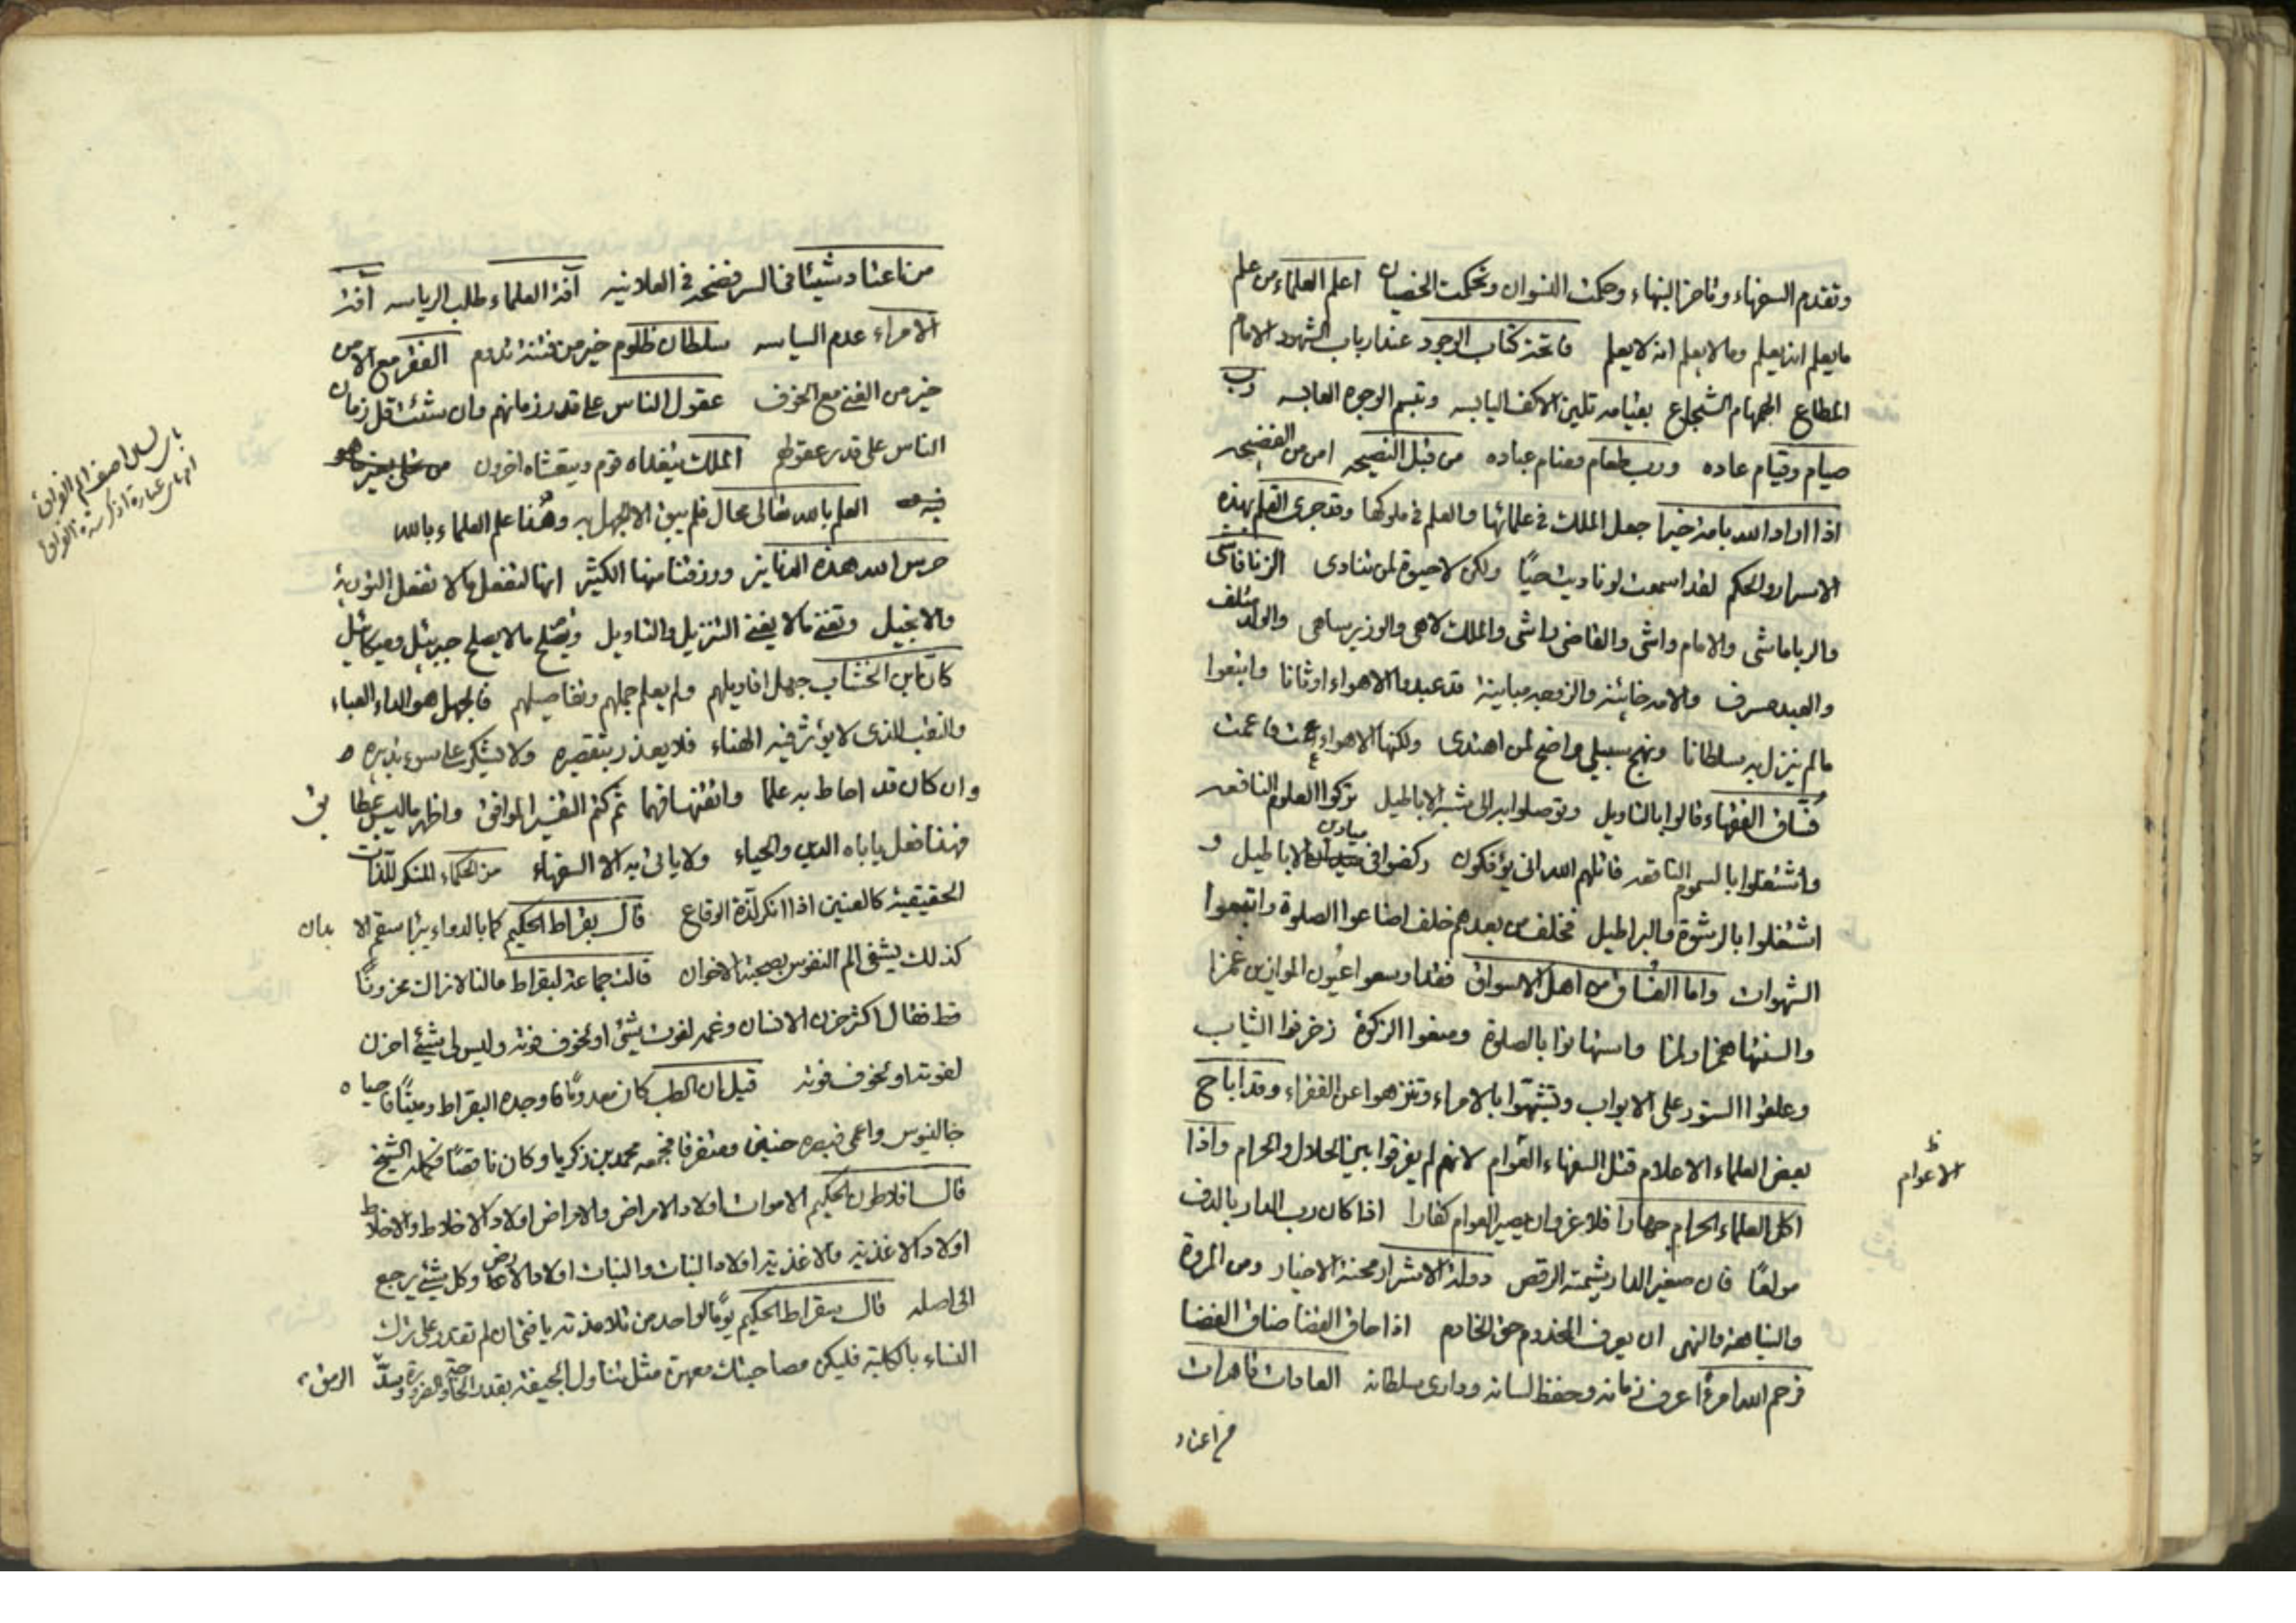 وتقدم السفهاء وتاخر النبهاء وحكمت النسوان وتحكمت الخصيان اعلم العلماء من علم
ما يعلم انه يعلم وما لا يعلم انه لا يعلم فاتحة كتاب الوجود عند ارباب الشهود الامام
المطاع الهمام الشجاع بقيامه تلين الاكف اليابسه وتبسم الوجوه العابسه رب
صيام وقيام عاده ورب طعام ومنام عباده من قبل النصيحه امن من الفضيحه
اذا اراد الله بامة خيرا جعل الملك في علمائها والعلم في ملوكها وقد جرى القلم بهذه
الاسرار والحكم لقد اسمعت لو ناديت حيًا ولكن لا حيوة لمن تنادى الزنا فاشى
والربا ماشى والامام واشى والقاضى راشى والملك لاهى والوزير ساهى والولد متلف
والعبد مسرف والامة خائنة والزوجه مباينة قد عبدوا الاهواء اوثانا واتبعوا
ما لم ينزل به سلطانا ونهج سبيلي واضح لمن اهتدى ولكنها الاهواء عمت فاعمت
فساق الفقهاء قالوا بالتاويل وتوصلوا به الى شبه الاباطيل تركوا العلوم النافعه
واشتغلوا بالسموم الناقعه قاتلهم الله انى يؤفكون ركضوا فى ميادين الاباطيل و
اشتغلوا بالرشوة والبراطيل فخلف من بعدهم خلف اضاعوا الصلوة واتبعوا
الشهوات واما الفساق من اهل الاسواق فقد اوسعوا عيون الموازين غمزا
والسنتها همزا ولمزا واستهانوا بالصلوة ومنعوا الزكوة زخرفوا الثياب
وعلقوا الستور على الابواب وتشبّهوا بالامراء وتنزهوا عن الفقراء وقد اباح
بعض العلماء الاعلام قتل السفهاء العوام لانهم لم يفرقوا بين الحلال والحرام واذا
ظ
الاعوام
اكل العلماء الحرام جهارا فلا غرو ان يصير العوام كفارا اذا كان رب الدار بالدف
مولعًا فان صغير الدار شيمته الرقص دولة الاشرار محنة الاخيار ومن المروة
والنباهة والنهى ان يعرف المخدوم حق الخادم اذا حاق القضا ضاق الفضا
فرحم الله امرءًا عرف زمانه وحفظ لسانه ودارى سلطانه العادات قاهرات
من اعتاد
من اعتاد شيئا فى السر فضحه فى العلانيه آفة العلماء طلب الرياسه آفة
الامراء عدم السياسه سلطان ظلوم خير من فتنة تدوم الفقر مع الامن
خير من الغنى مع الخوف عقول الناس على قدر زمانهم وان شئت قل زمان
الناس على قدر عقولهم الملك يتغداه قوم ويتعشاه اخرون
فيه العلم بالله تعالى محال فلم يبق الا الجهل به وهذا علم العلماء بالله
حرس الله هذه الدنانير ورزقنا منها الكثير انها لتفعل ما لا تفعل التورية
والانجيل وتغنى ما لا يغنى التنزيل والتاويل وتصلح ما لا يصلح جبرئيل وميكائيل
كان ابن الخشاب جهل اقاويلهم ولم يعلم جملهم وتفاصيلهم فالجهل هو الداء العياء
والنقب الذى لا يؤثر فيه الهناء فلا يعذر بتقصيره ولا يشكر على سوء تدبيره
وان كان قد احاط به علما واتقنها فهما ثم كتم التفسير الموافق واظهر ما ليس بمطابق
فهذا فعل ياباه الدين والحياء ولا يانى به الا السفهاء من الحكماء المنكر للذات
الحقيقية كالعنين اذا انكر لذة الوقاع قال بقراط الحكيم كما بالدواء يبرأ سقم الابدان
كذلك يشفى الم النفوس بصحبة الاخوان قالت جماعة لبقراط ما لنا لا نراك محزونًا
قط فقال اكثر حزن الانسان وغمه لفوت شئ او لخوف فوته وليس لى شئ احزن
لفوته او لخوف فوته قيل ان الطب كان معدومًا فاوجده البقراط وميتًا فاحياه
جالينوس واعمى فبصره حنين ومتفرقا فجمعه محمد بن زكريا وكان ناقصًا فكمله الشيخ
قال افلاطون الحكيم الاموات اولاد الامراض والامراض اولاد الاخلاط والاخلاط
اولاد الاغذية والاغذية اولاد النبات والنبات اولاد الارض وكل شئ يرجع
الى اصله قال سقراط الحكيم يومًا لواحد من تلامذته يا فتى ان لم تقدر على ترك
النساء بالكلية فليكن مصاحبتك معهن مثل تناول الجيفة بقدر الحاجة والضرورة وسدّ الرمق